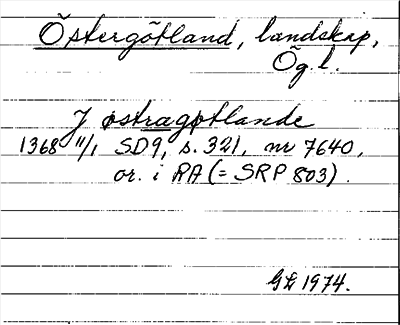 Östergötland, landskap,
Ög.l.
J østragøtlande
1368 11/1 SD9, s. 321, nr 7640,
or. i RA (= SRP 803).
GL 1974.